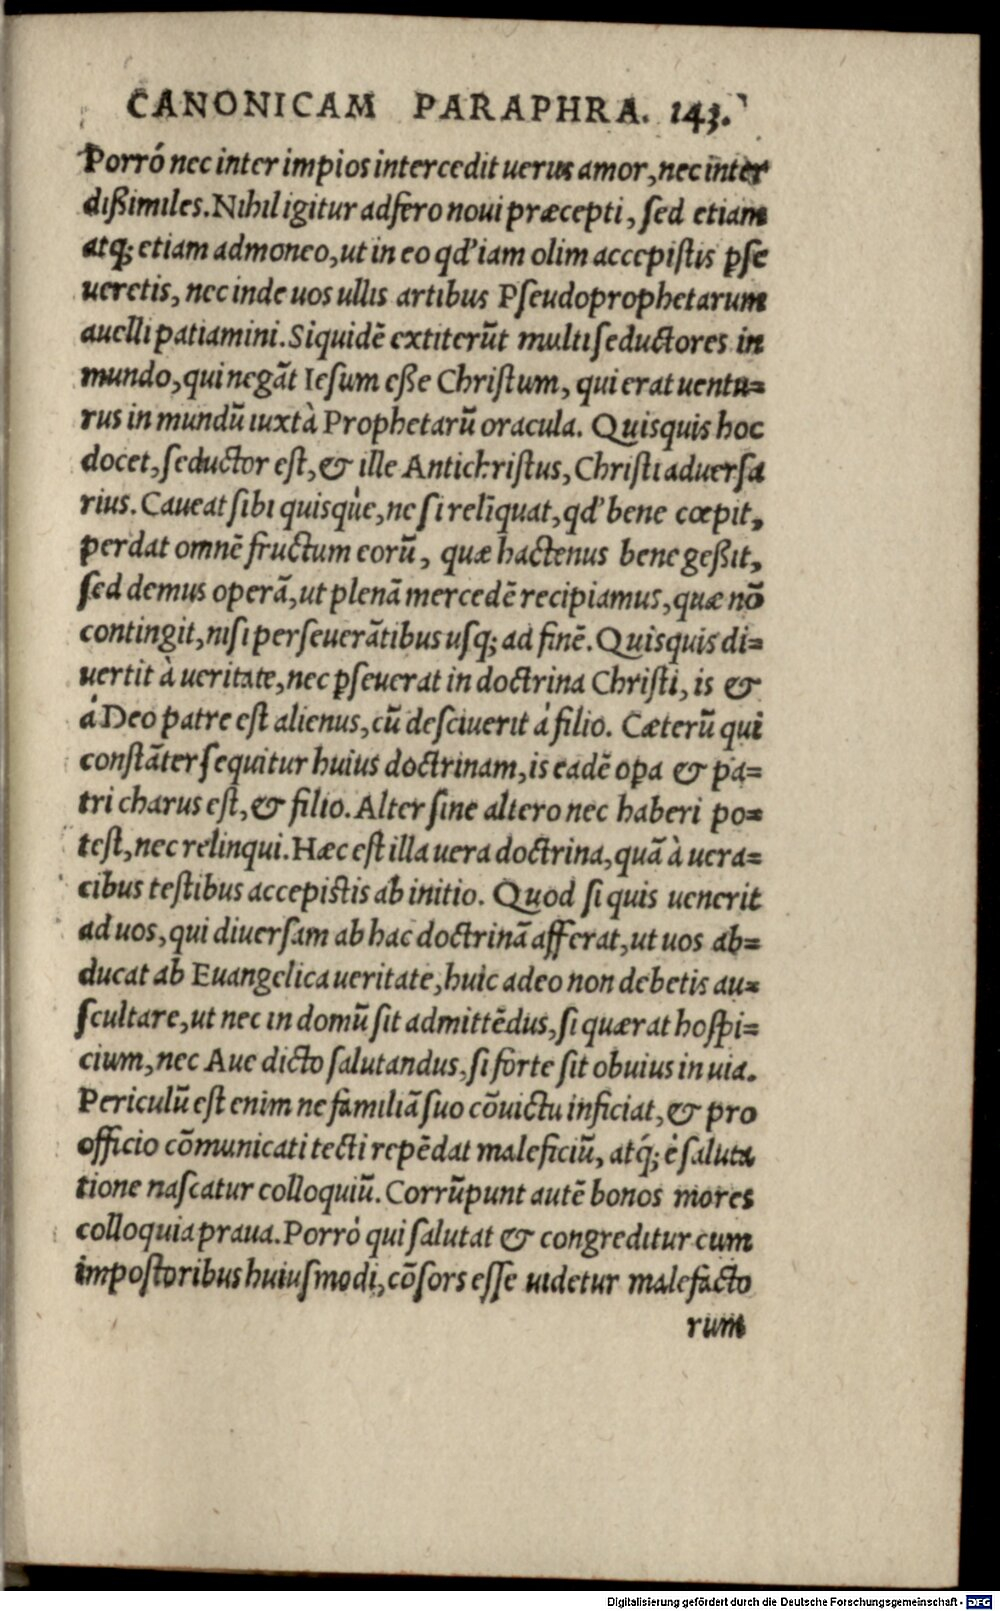 CANONICAM PARAPHRA. 143.
Porró nec inter impios intercedit uerus amor, nec inter
dißimiles. Nihil igitur adfero noui præcepti, sed etiam
atq; etiam admoneo, ut in eo qđ iam olim accepistis ꝑse
ueretis, nec inde uos ullis artibus Pseudoprophetarum
auelli patiamini. Siquidē extiterūt multi seductores in
mundo, qui negāt Iesum eße Christum, qui erat uentu=
rus in mundū iuxtà Prophetarū oracula. Quisquis hoc
docet, seductor est, & ille Antichristus, Christi aduersa
rius. Caueat sibi quisqùe, ne si relīquat, qđ bene cœpit,
perdat omnē fructum eorū, quæ hactenus bene geßit,
sed demus operā, ut plenā mercedē recipiamus, quæ nō
contingit, nisi perseuerātibus usq; ad finē. Quisquis di=
uertit à ueritate, nec ꝑseuerat in doctrina Christi, is &
á Deo patre est alienus, cū desciuerit á filio. Cæterū qui
constāter sequitur huius doctrinam, is eadē oꝑa & pa=
tri charus est, & filio. Alter sine altero nec haberi po=
test, nec relinqui. Hæc est illa uera doctrina, quā à uera=
cibus testibus accepistis ab initio. Quod si quis uenerit
ad uos, qui diuersam ab hac doctrinā afferat, ut uos ab=
ducat ab Euangelica ueritate, huic adeo non debetis au=
scultare, ut nec in domū sit admittēdus, si quærat hospi=
cium, nec Aue dicto salutandus, si forte sit obuius in uia.
Periculū est enim ne familiā suo cōuictu inficiat, & pro
officio cōmunicati tecti repēdat maleficiū, atq́; è saluta
tione nascatur colloquiū. Corrūpunt autē bonos mores
colloquia praua. Porró qui salutat & congreditur cum
impostoribus huiusmodi, cōsors esse uidetur malefacto
rum
Digitalisierung gefördert durch die Deutsche Forschungsgemeinschaft - DFG